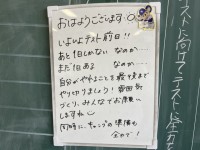 おはようございます
いよいよテスト前日!!
あと1日しかない なのか…
まだ1日ある なのか…
自分がやれることを最後まで
やり切りましょう!雰囲気
づくり、みんなでお願い
しますね
同時に、キャンプの準備も
全力で!
テストに向けて
テストに全力